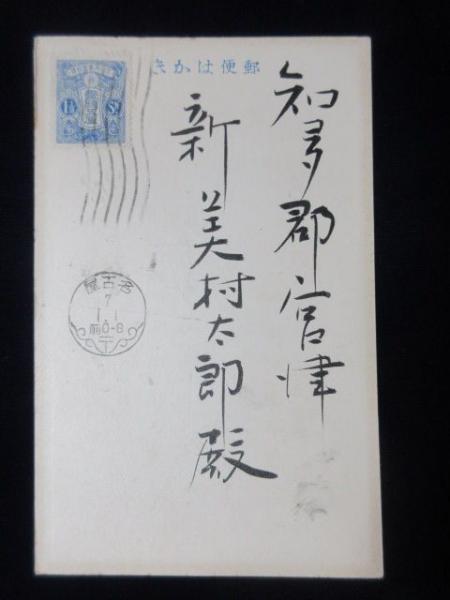 郵便はかき
知多郡宮津
新美村太郎殿
1½ Sn
名古屋
7
1.1
前0-8